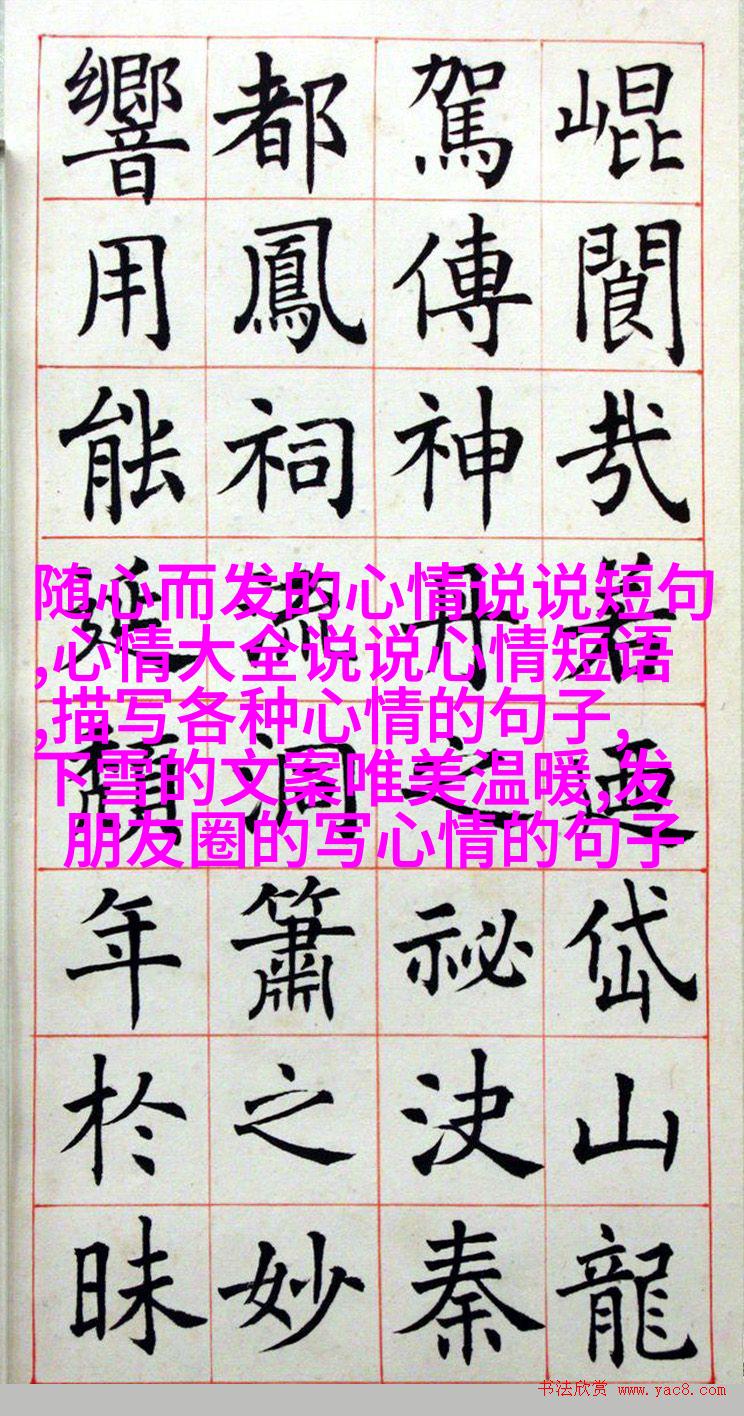 崐閬㦲若迺岱山龍
駕傳神丹之祕決秦
都鳳祠流洞簫之妙
響用能延頽年於昧
随心而发的心情说说短句
,心情大全说说心情短语
,描写各种心情的句子,
下雪的文案唯美温暖,发
朋友圈的写心情的句子
书法欣赏 www.yac8.com